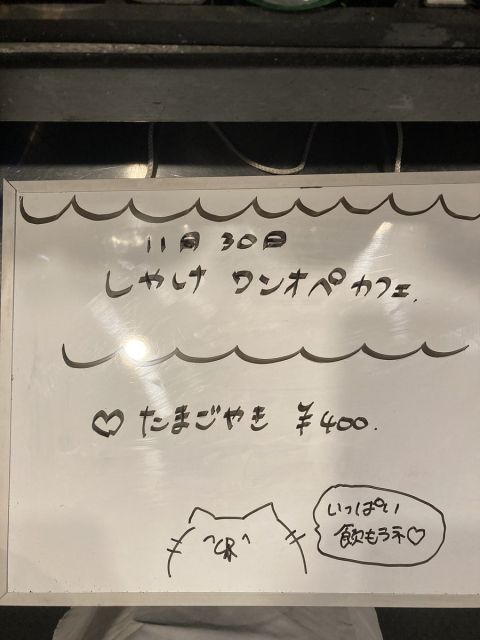 11月 30日
しゃけ ワンオペカフェ.
♡ たまごやき ¥400.
いっぱい
飲もうネ♡